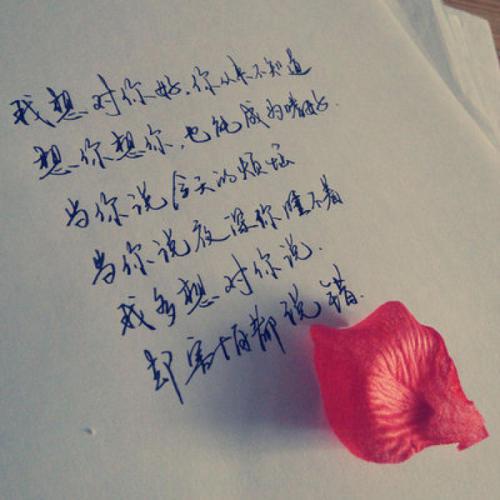 我想对你好,你从来不知道
想你想你,也能成为嗜好.
当你说今天的烦恼
当你说夜深你睡不着
我多想对你说.
却害怕都说错.